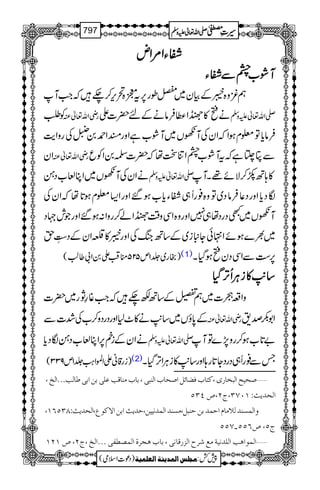 797
سیرتِ مصطفیٰ صلی اللہ تعالیٰ علیہ وسلم
شفاءِ امراض
آشوبِ چشم سے شفاء
ہم غزوۂ خیبر کے بیان میں مفصل طور پر یہ معجزہ تحریر کر چکے ہیں کہ جب آپ
صلی اللہ تعالیٰ علیہ وسلم نے فتح کا جھنڈا عطا فرمانے کے لئے حضرت علی رضی اللہ تعالیٰ عنہ کو طلب
فرمایا تو معلوم ہوا کہ ان کی آنکھوں میں آشوب ہے اور مسند احمد بن حنبل کی روایت
سے پتا چلتا ہے کہ یہ آشوبِ چشم اتنا سخت تھا کہ حضرت سلمہ بن اکوع رضی اللہ تعالیٰ عنہ ان
کا ہاتھ پکڑ کر لائے تھے۔ آپ صلی اللہ تعالیٰ علیہ وسلم نے ان کی آنکھوں میں اپنا لعابِ دہن
لگا دیا اور دعا فرما دی تو وہ فوراً ہی شفا یاب ہو گئے اور ایسا معلوم ہوتا تھا کہ ان کی
آنکھوں میں کبھی درد تھا ہی نہیں اور وہ اسی وقت جھنڈا لے کر روانہ ہو گئے اور جوشِ جہاد
میں بھرے ہوئے انتہائی جانبازی کے ساتھ جنگ کی اور خیبر کا قلعہ ان کے دستِ حق
پرست سے اسی دن فتح ہو گیا۔(1) (بخاری جلد۱ ص۵۲۵ مناقب علی بن ابی طالب)
سانپ کا زہر اُتر گیا
واقعہ ہجرت میں ہم تفصیل کے ساتھ لکھ چکے ہیں کہ جب غارِ ثور میں حضرت
ابوبکر صدیق رضی اللہ تعالیٰ عنہ کے پاؤں میں سانپ نے کاٹ لیا اور درد و کرب کی شدت سے
بے تاب ہو کر رو پڑے تو آپ صلی اللہ تعالیٰ علیہ وسلم نے ان کے زخم پر اپنا لعابِ دہن لگا دیا
جس سے فوراً ہی درد جاتا رہا اور سانپ کا زہر اُتر گیا۔(2) (زرقانی علی المواہب جلد۱ ص۳۳۹)
صحیح البخاری، کتاب فضائل اصحاب النبی، باب مناقب علی بن ابی طالب...الخ،
الحدیث: ۳۷۰۱، ج۲، ص۵۳٤
والمسند للامام احمد بن حنبل، مسند المدنیین، حدیث ابن الاکوع، الحدیث: ۱٦٥۳۸،
ج٥، ص٥٥٦-٥٥٧
المواھب اللدنیة مع شرح الزرقانی، باب ھجرة المصطفی...الخ، ج۲، ص ۱۲۱
پیش کش: مجلس المدینة العلمیة (دعوتِ اسلامی)